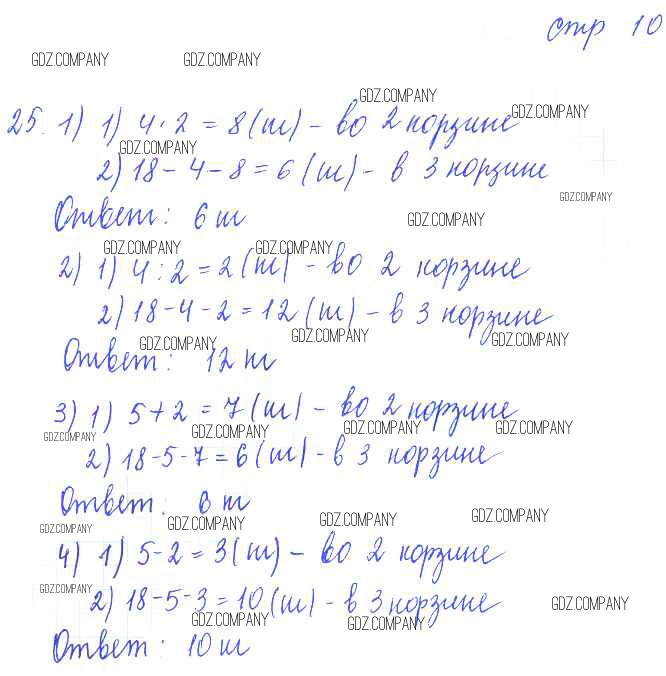 стр 10
GDZ.COMPANY GDZ.COMPANY
GDZ.COMPANY
25. 1) 1) 4 · 2 = 8 (ш) - во 2 корзине
GDZ.COMPANY
GDZ.COMPANY
2) 18 - 4 - 8 = 6 (ш) - в 3 корзине
GDZ.COMPANY
Ответ: 6 ш
GDZ.COMPANY
GDZ.COMPANY GDZ.COMPANY
2) 1) 4 : 2 = 2 (ш) - во 2 корзине
2) 18 - 4 - 2 = 12 (ш) - в 3 корзине
GDZ.COMPANY GDZ.COMPANY GDZ.COMPANY
Ответ: 12 ш
3) 1) 5 + 2 = 7 (ш) - во 2 корзине
GDZ.COMPANY GDZ.COMPANY GDZ.COMPANY GDZ.COMPANY
2) 18 - 5 - 7 = 6 (ш) - в 3 корзине
Ответ: 6 ш
GDZ.COMPANY GDZ.COMPANY GDZ.COMPANY GDZ.COMPANY
4) 1) 5 - 2 = 3 (ш) - во 2 корзине
GDZ.COMPANY
2) 18 - 5 - 3 = 10 (ш) - в 3 корзине
GDZ.COMPANY GDZ.COMPANY GDZ.COMPANY
Ответ: 10 ш